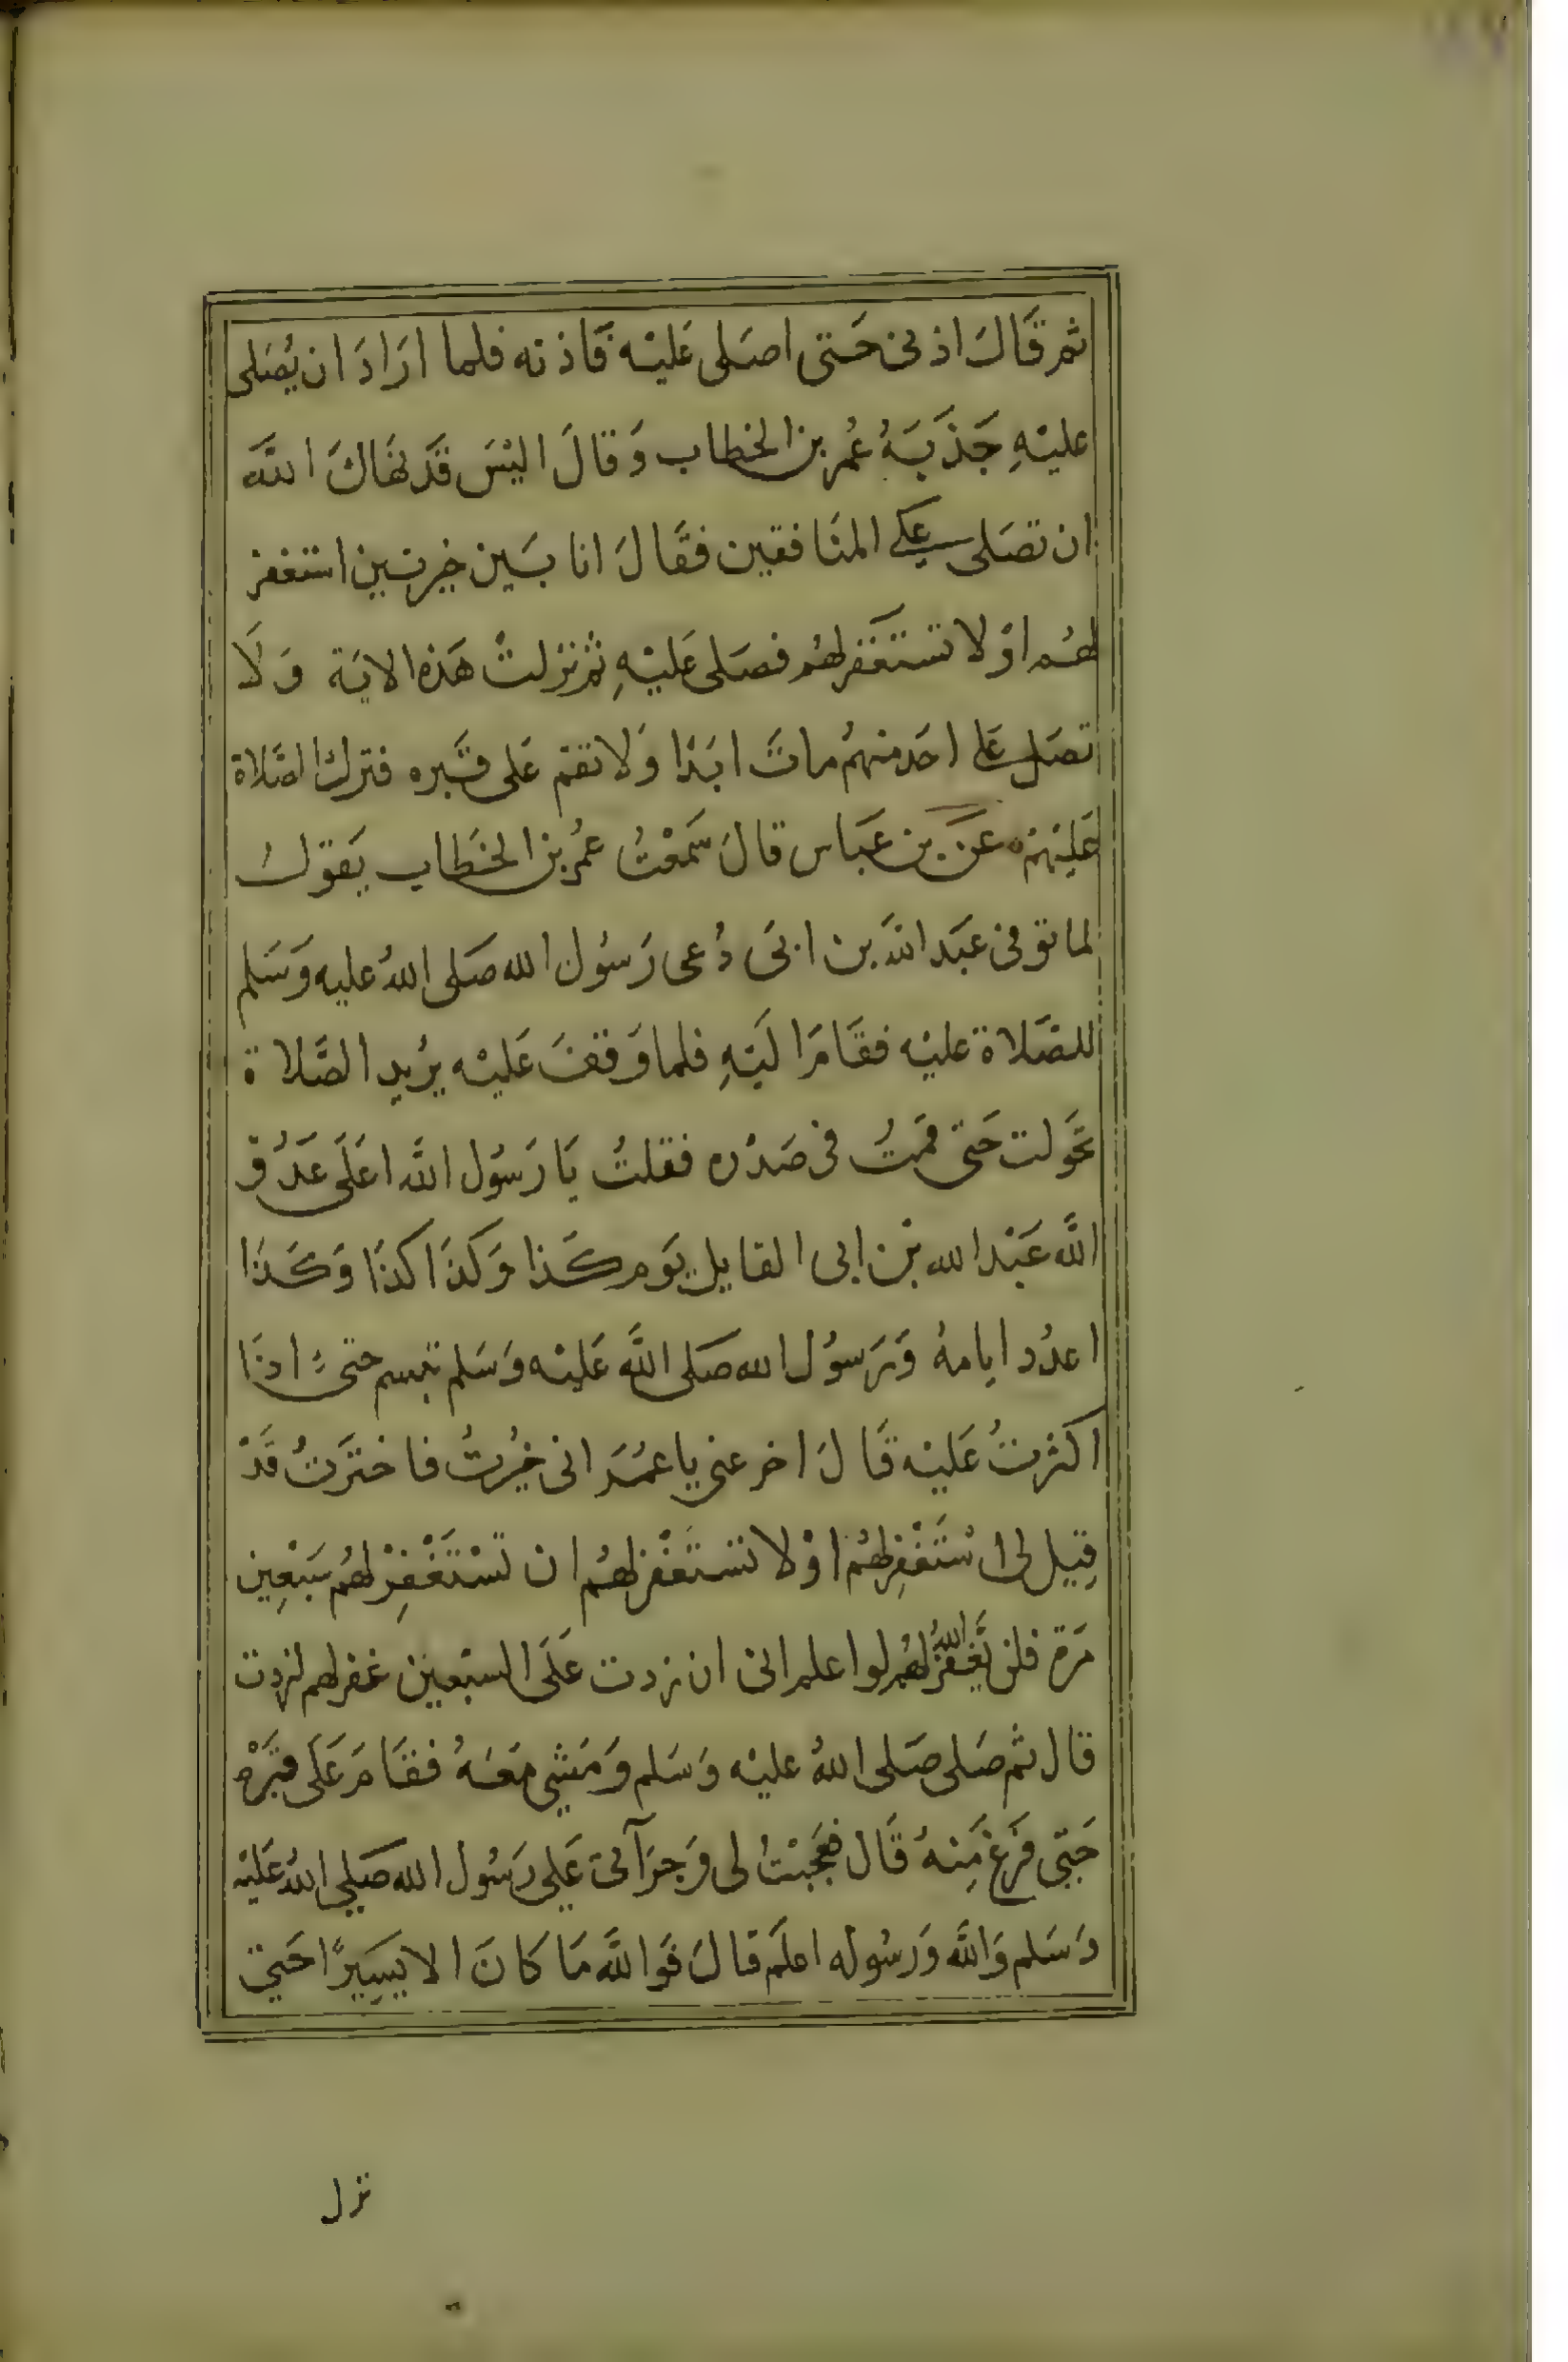 ثم قَالَ اذنى حَتى اصَلى عَليْه فَاذنه فلما ارَادَ ان يُصَلى
عليْهِ جَذَبَهُ عُمر بن الخطاب وَقالَ اليْسَ قَد نَهَاكَ اللَّه
ان تصَلى على المنَافقين فقَالَ انا بَين خيرتين استغفر
لهُم اوْ لا تستَغفر لهُم فصَلى عَليْهِ ثم نزلتْ هَذه الايَة وَلَا
تصَل عَلى احَد منهُم ماتَ ابَدًا وَلا تقم عَلى قَبره فترك الصَّلاة
عَليْهم عَن بن عَبَاس قالَ سَمعْتُ عُمر بن الخَطاب يَقوَلُ
لما توفى عَبَد اللَّه بن ابىَ دُعى رَسُول الله صَلى اللهُ عليه وَسَلم
للصَّلاة عليْه فقَامَ اليَهِ فلما وَقفَ عَليْه يرُيد الصَّلاة
تحَولت حَتى قمَتُ فى صَدْره فقلتُ يَا رَسُول اللَّه اعَلَى عَدُو
اللَّه عَبْد الله بْن ابى القايل يَوم كَذا وَكذَا كذَا وَكَذَا
اعدُد ايامهُ وَرَسوُل الله صَلى اللَّه عَليْه وَسَلم تبسم حتى اذَا
اكثرتُ عَليْه قَالَ اخر عنى يا عمُرَ انى خيُرتُ فاخترَتُ قَدْ
قِيل لى اسْتَغْفِر لهُم اوْ لا تستَغْفر لهُم ان تَسْتَغْفِرْ لهُم سَبْعِين
مَرة فلن يَّغفرَ اللهُ لهُم لو اعلم انى ان زدت عَلَى السبْعين غفر لهم لزدت
قال ثم صَلى صَلى اللهُ عليْه وَسَلم وَمَشي مَعَهُ فقَامَ عَلَى قبَرْه
حَتّى فَرَغ مِنهُ قَال فعَجبْتُ لى وَجرَآتى عَلى رَسُول الله صَلى اللهُ عَليْه
وَسَلم وَاللَّه وَرَسُوله اعلَم قالَ فَوَاللَّه مَا كَانَ الا يسَيرًا حَتى
نزل